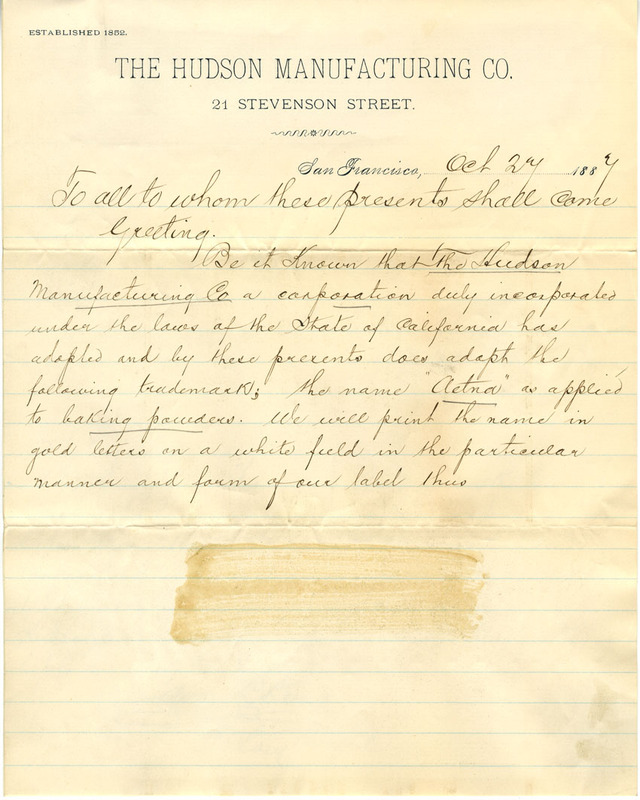 ESTABLISHED 1852.
THE HUDSON MANUFACTURING CO.
21 STEVENSON STREET.
San Francisco, Oct 27 1887
To all to whom these presents shall come
Greeting.
Be it Known that The Hudson
Manufacturing Co a corporation duly incorporated
under the laws of the State of California has
adopted and by these presents does adopt the
following trademark; the name "Aetna" as applied
to baking powders. We will print the name in
gold letters on a white field in the particular
manner and form of our label thus